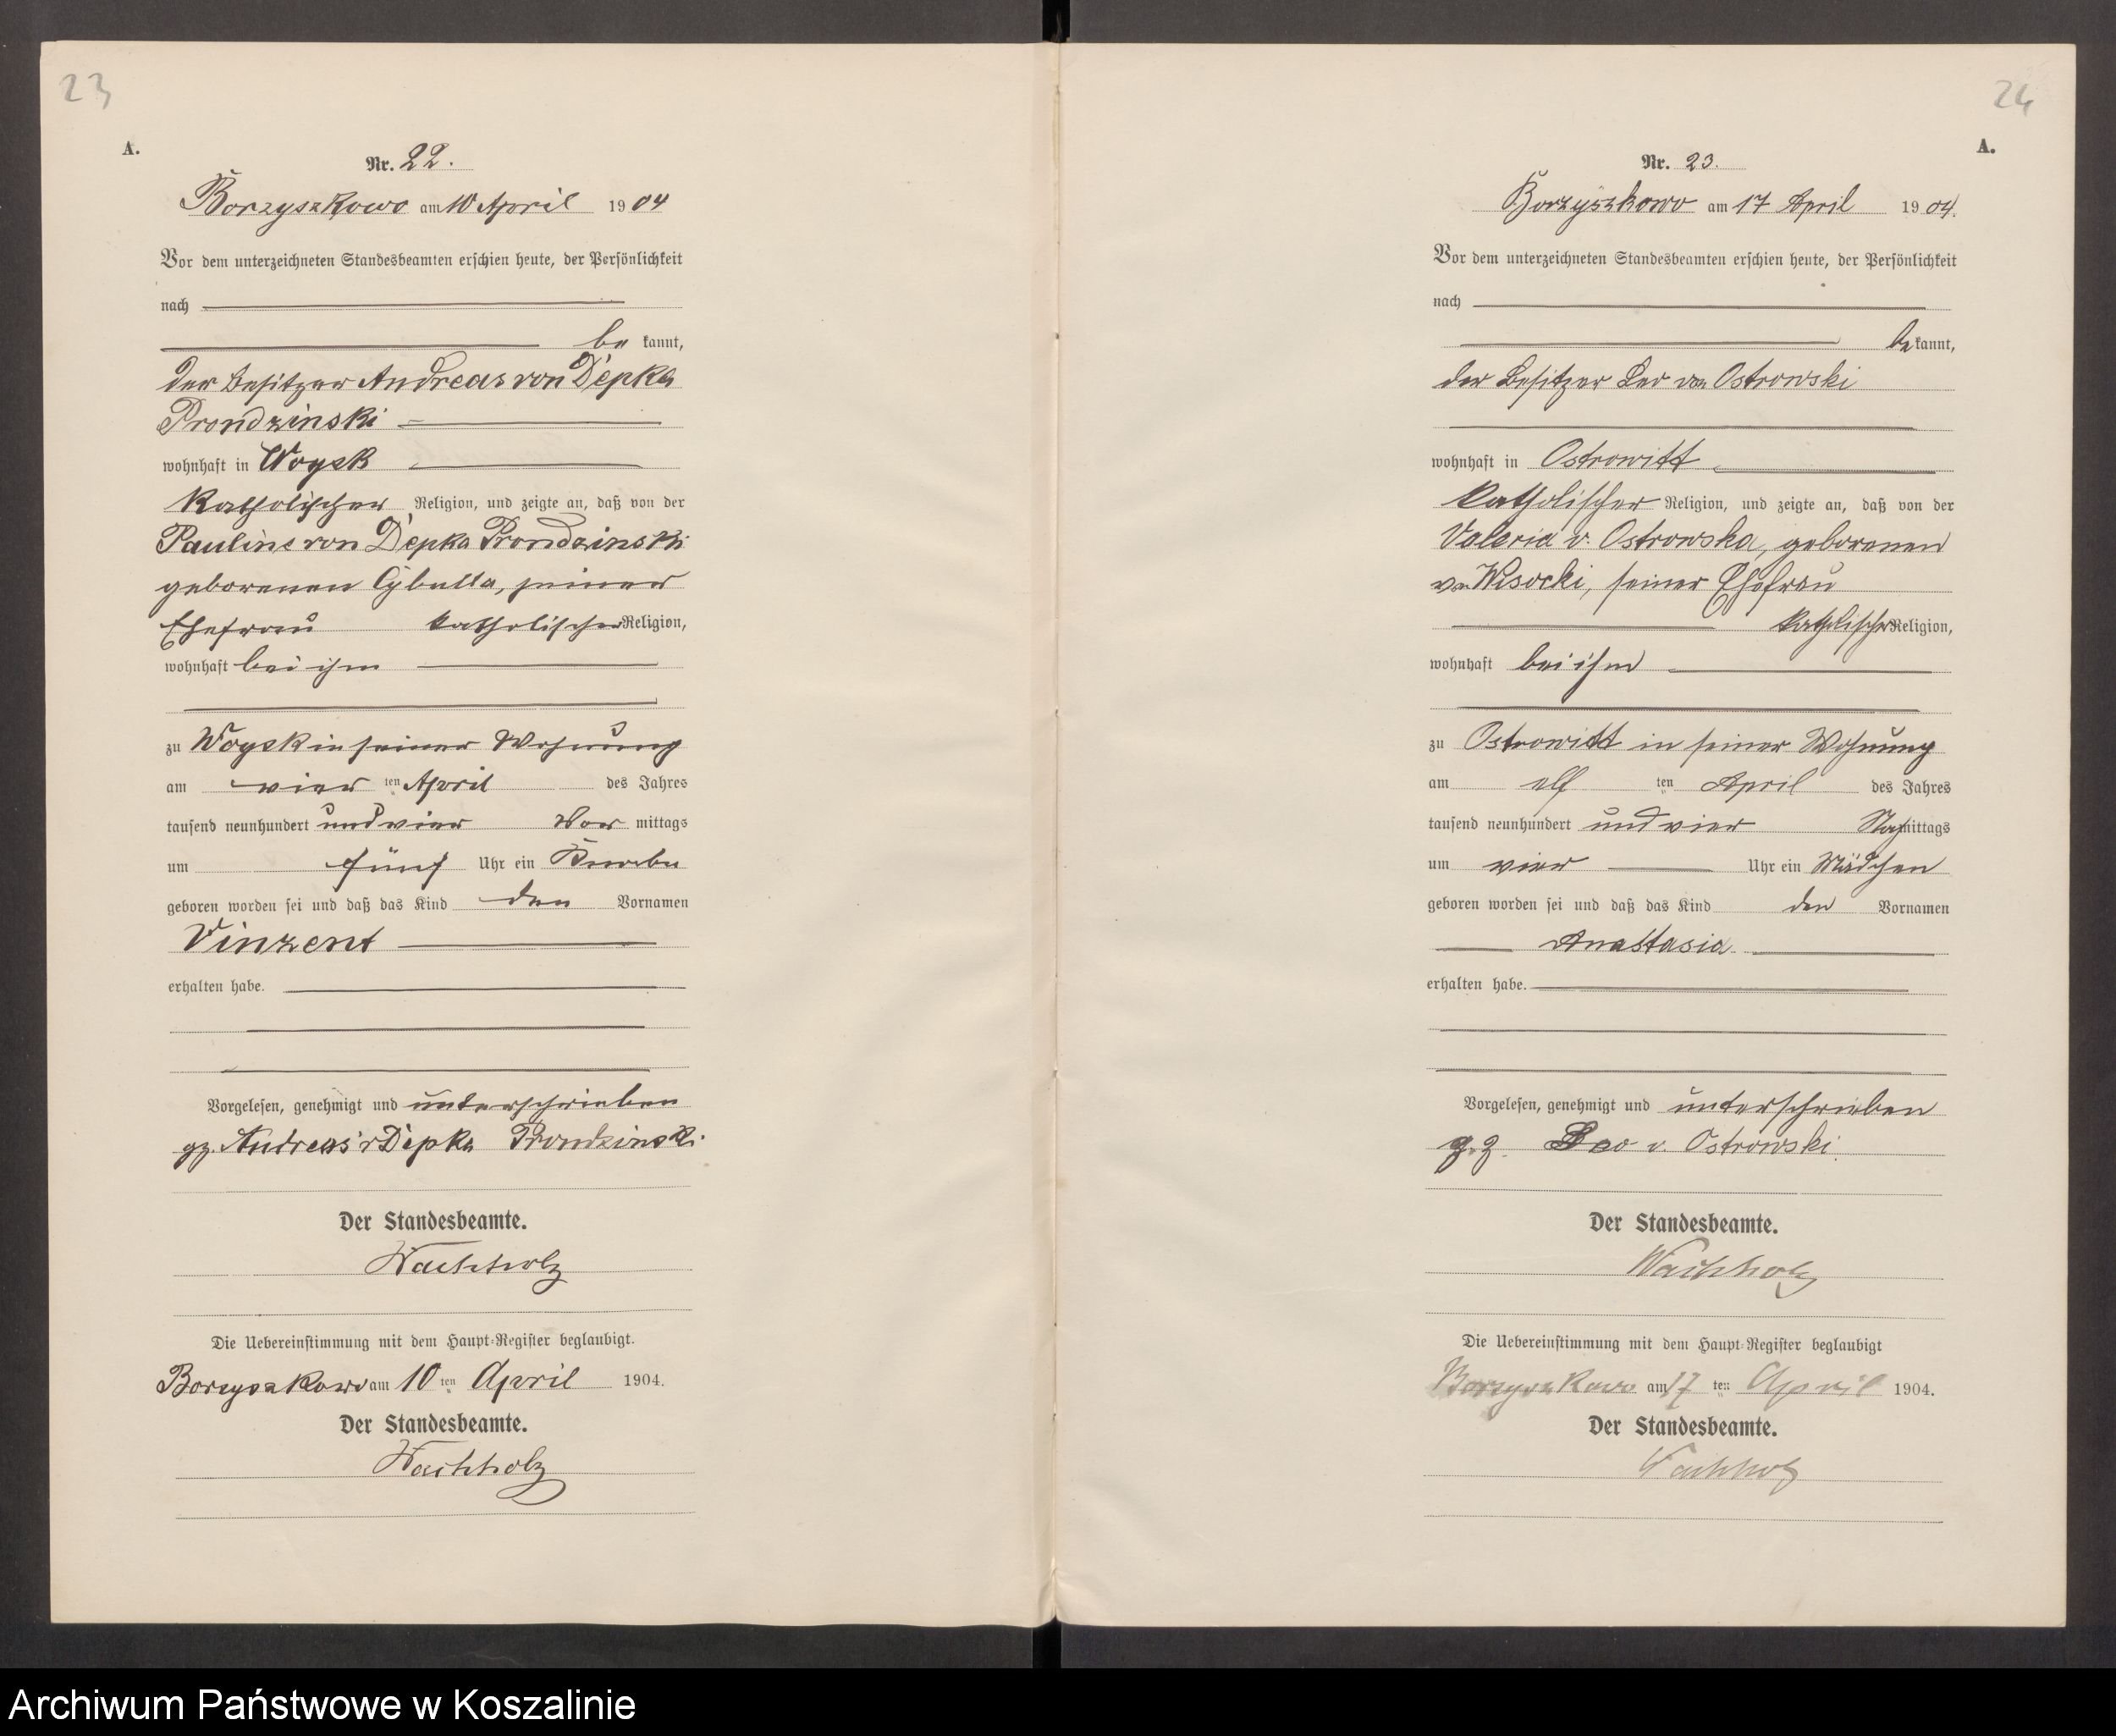 23
A.
Nr. 22.
Borzyszkowo am 10 April 1904
Vor dem unterzeichneten Standesbeamten erschien heute, der Persönlichkeit
nach
be kannt,
der Besitzer Andreas von Depka
Prondzinski
wohnhaft in Woysk
katholischer Religion, und zeigte an, daß von der
Pauline von Depka Prondzinski
geborenen Cybulla, seiner
Ehefrau katholischer Religion,
wohnhaft bei ihm
zu Woysk in seiner Wohnung
am vier ten April des Jahres
tausend neunhundert und vier Vor mittags
um fünf Uhr ein Knabe
geboren worden sei und daß das Kind den Vornamen
Vinzent
erhalten habe.
Vorgelesen, genehmigt und unterschrieben
gz. Andreas v Depka Prondzinski
Der Standesbeamte.
Wachholz
Die Uebereinstimmung mit dem Haupt-Register beglaubigt.
Borzyszkowo am 10 ten April 1904.
Der Standesbeamte.
Wachholz
24
A.
Nr. 23.
Borzyszkowo am 17 April 1904.
Vor dem unterzeichneten Standesbeamten erschien heute, der Persönlichkeit
nach
be kannt,
der Besitzer Leo von Ostrowski
wohnhaft in Ostrowitt
katholischer Religion, und zeigte an, daß von der
Valeria v. Ostrowska, geborenen
von Wisocki, seiner Ehefrau
katholischer Religion,
wohnhaft bei ihm
zu Ostrowitt in seiner Wohnung
am elf ten April des Jahres
tausend neunhundert und vier Nach mittags
um vier Uhr ein Mädchen
geboren worden sei und daß das Kind den Vornamen
Anastasia
erhalten habe.
Vorgelesen, genehmigt und unterschrieben
g.z. Leo v. Ostrowski.
Der Standesbeamte.
Wachholz
Die Uebereinstimmung mit dem Haupt-Register beglaubigt
Borzyszkowo am 17 ten April 1904.
Der Standesbeamte.
Wachholz
Archiwum Państwowe w Koszalinie